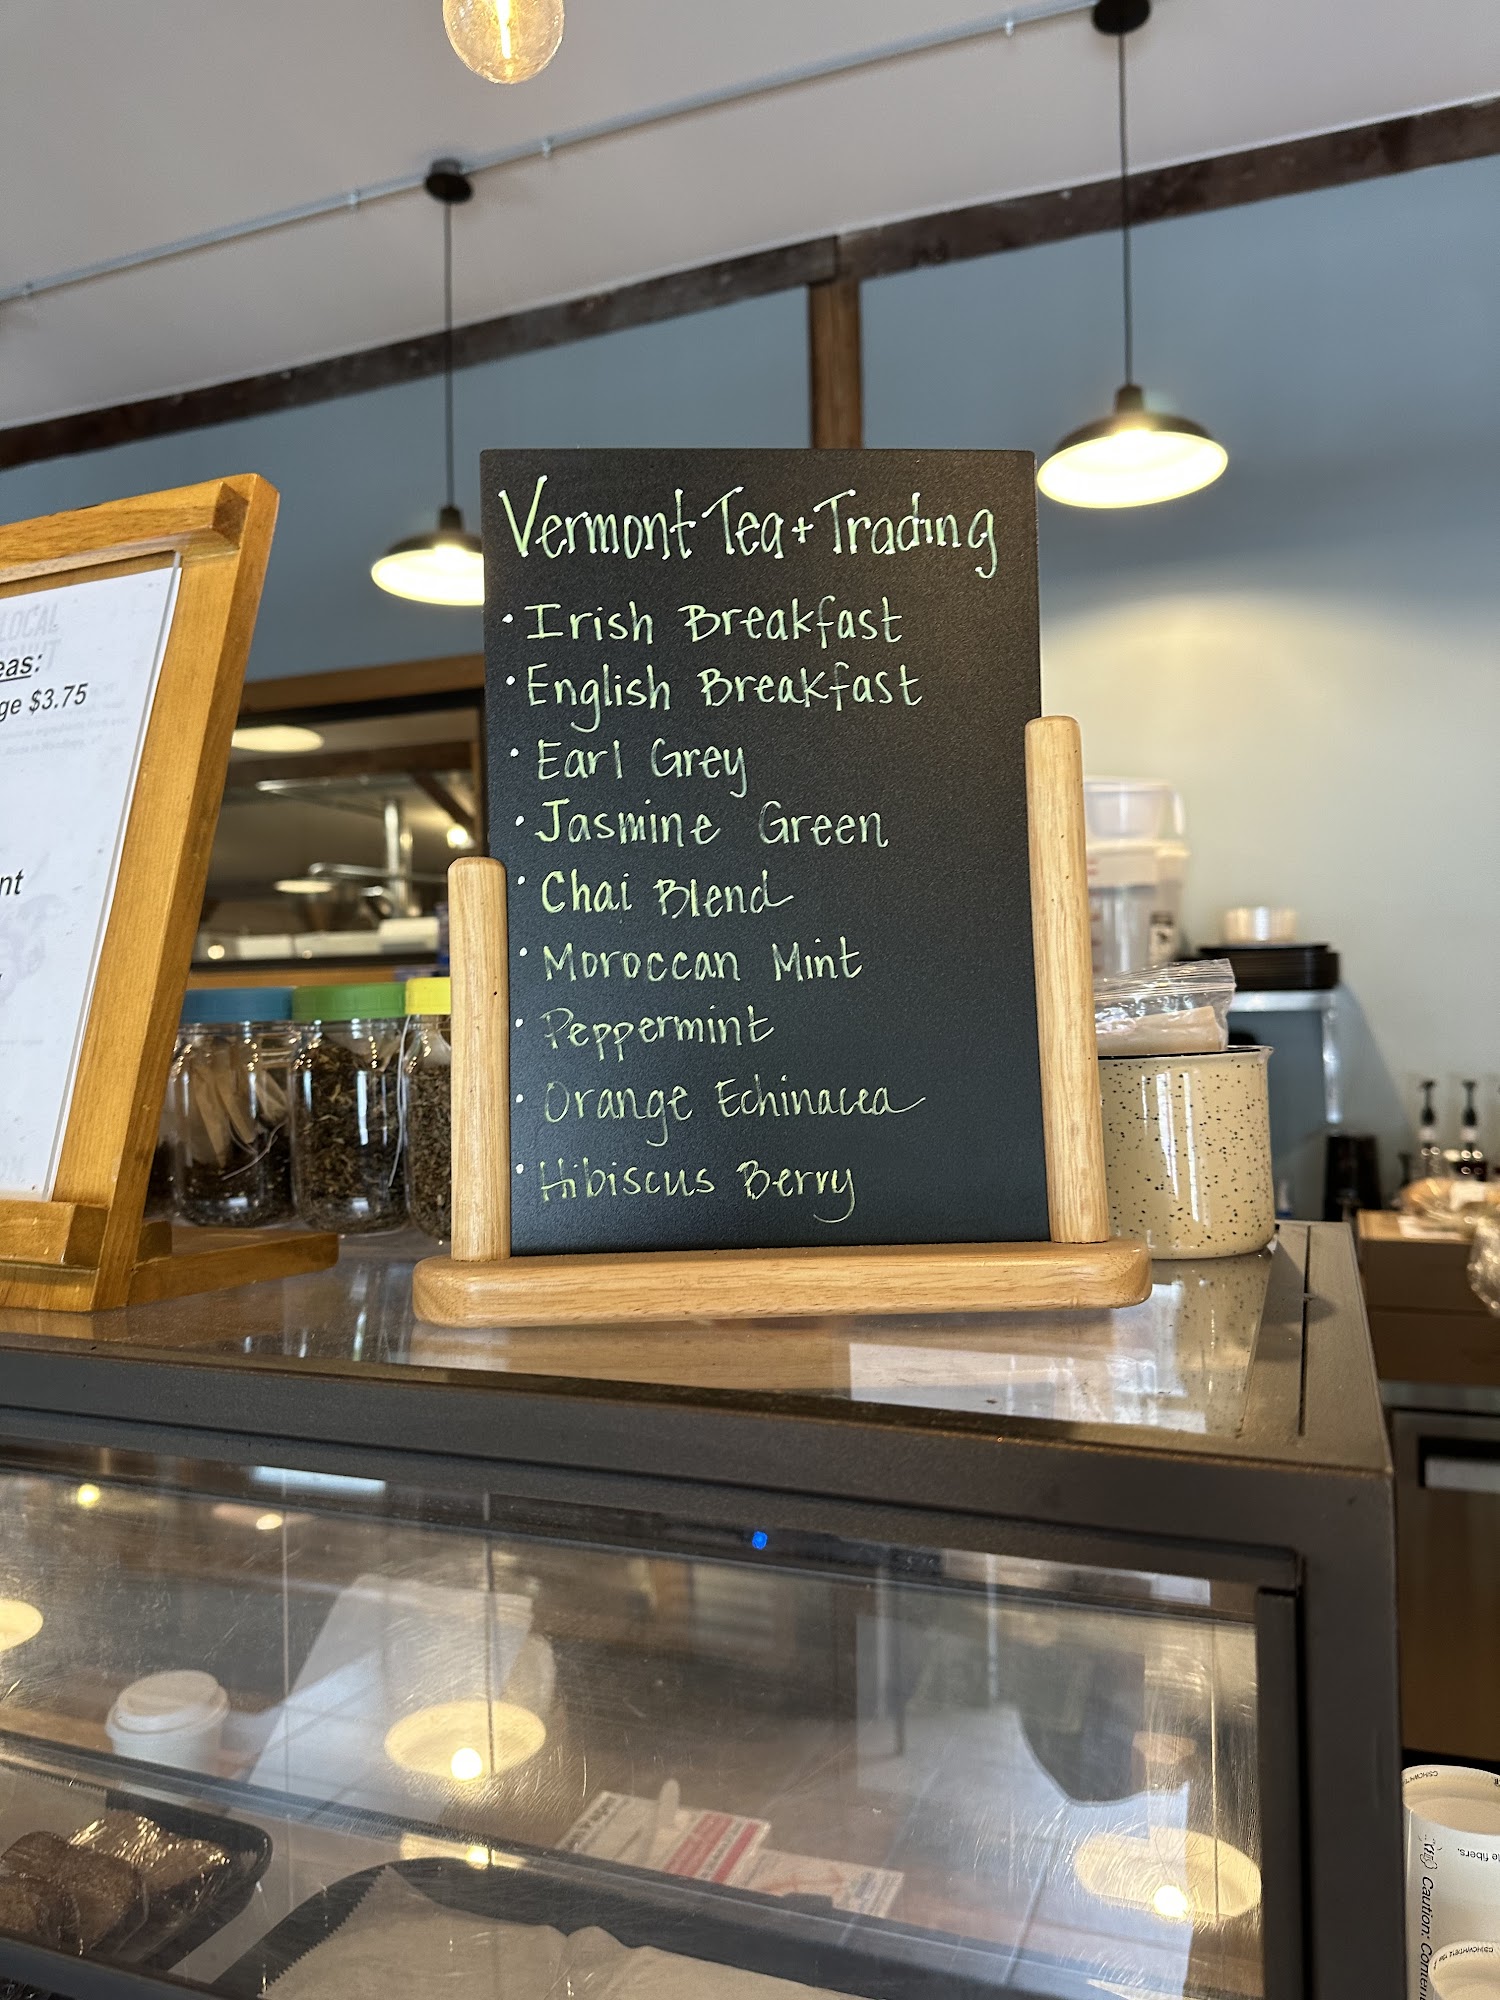 Vermont Tea + Trading
• Irish Breakfast
• English Breakfast
• Earl Grey
• Jasmine Green
• Chai Blend
• Moroccan Mint
• Peppermint
• Orange Echinacea
• Hibiscus Berry
LOCAL
eas:
ge $3.75
nt
Caution:
le fibers.